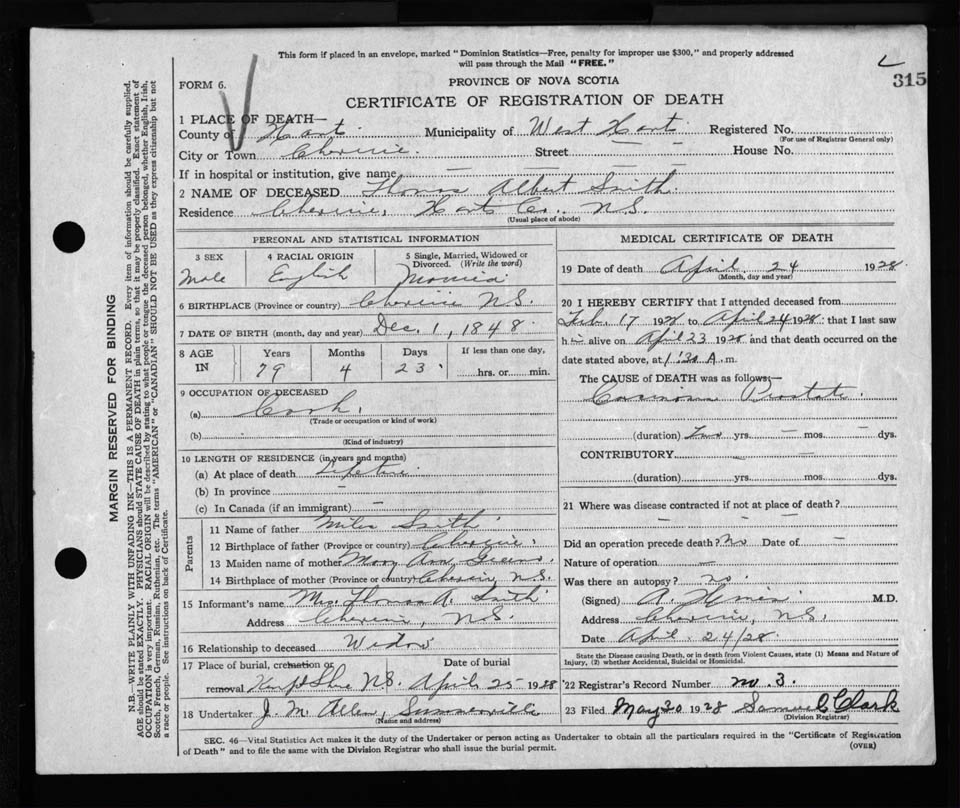 This form if placed in an envelope, marked "Dominion Statistics—Free, penalty for improper use $300," and properly addressed
will pass through the Mail "FREE."
315
FORM 6.
PROVINCE OF NOVA SCOTIA
CERTIFICATE OF REGISTRATION OF DEATH
1 PLACE OF DEATH—
County of Hants. Municipality of West Hants. Registered No.
(For use of Registrar General only)
City or Town Cheverie. Street — — House No.
If in hospital or institution, give name — — — —
2 NAME OF DECEASED Thomas Albert Smith.
Residence Cheverie, Hants Co., N.S.
(Usual place of abode)
PERSONAL AND STATISTICAL INFORMATION
3 SEX Male
4 RACIAL ORIGIN English
5 Single, Married, Widowed or Divorced. (Write the word) Married
6 BIRTHPLACE (Province or country) Cheverie N.S.
7 DATE OF BIRTH (month, day and year) Dec. 1, 1848.
8 AGE IN Years Months Days If less than one day,
79 4 23 hrs. or min.
9 OCCUPATION OF DECEASED
(a) Cook.
(Trade or occupation or kind of work)
(b)
(Kind of industry)
10 LENGTH OF RESIDENCE (in years and months)
(a) At place of death Lifetime.
(b) In province —
(c) In Canada (if an immigrant) —
Parents
11 Name of father Smith
12 Birthplace of father (Province or country) Cheverie.
13 Maiden name of mother Mary Ann
14 Birthplace of mother (Province or country) Cheverie N.S.
15 Informant's name Mrs. Thomas A. Smith
Address Cheverie, N.S.
16 Relationship to deceased Widow
17 Place of burial, cremation or removal N.S.
Date of burial April 25 1928
18 Undertaker J. M. Allen, Summerville
(Name and address)
MEDICAL CERTIFICATE OF DEATH
19 Date of death April 24 1928.
(Month, day and year)
20 I HEREBY CERTIFY that I attended deceased from
Feb. 17 1928 to April 24 1928: that I last saw
him alive on April 23 1928 and that death occurred on the
date stated above, at 1:30 A. m.
The CAUSE OF DEATH was as follows:—
Carcinoma Prostate.
(duration) Two yrs. — mos. — dys.
CONTRIBUTORY — —
(duration) yrs. mos. dys.
21 Where was disease contracted if not at place of death?
— — —
Did an operation precede death? No Date of —
Nature of operation —
Was there an autopsy? no.
(Signed) A. M.D.
Address Cheverie, N.S.
Date April 24/28
State the Disease causing Death, or in death from Violent Causes, state (1) Means and Nature of
Injury, (2) whether Accidental, Suicidal or Homicidal.
22 Registrar's Record Number no 3.
23 Filed May 30 1928 Samuel Clark
(Division Registrar)
SEC. 46—Vital Statistics Act makes it the duty of the Undertaker or person acting as Undertaker to obtain all the particulars required in the "Certificate of Registration
of Death" and to file the same with the Division Registrar who shall issue the burial permit.
(OVER)
MARGIN RESERVED FOR BINDING
N.B. WRITE PLAINLY WITH UNFADING INK—THIS IS A PERMANENT RECORD. Every item of information should be carefully supplied.
AGE should be stated EXACTLY. PHYSICIANS should STATE CAUSE OF DEATH in plain terms, so that it may be properly classified. Exact statement of
OCCUPATION is very important. RACIAL ORIGIN will be described by stating to what people or tongue the deceased person belonged, whether English, Irish,
Scotch, French, German, Russian, Ruthenian, etc. The terms "AMERICAN" or "CANADIAN" SHOULD NOT BE USED as they express citizenship but not
a race or people. See instructions on back of Certificate.